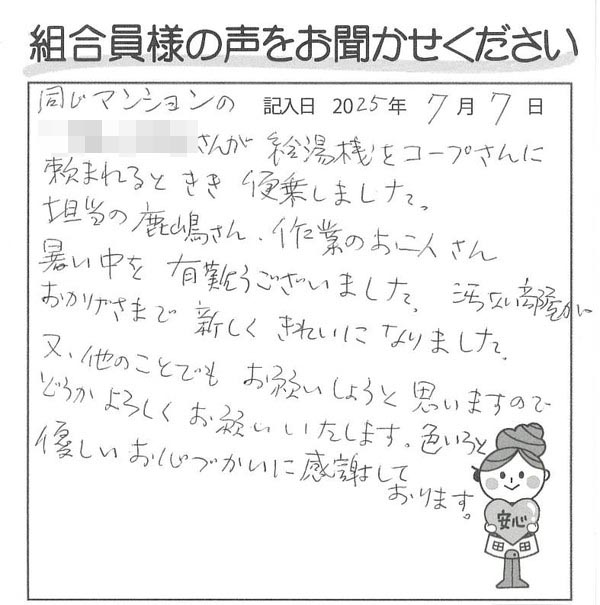 組合員様の声をお聞かせください
記入日 2025年 7月 7日
同じマンションの
さんが 給湯栈をコープさんに
頼まれるときき 便乗しました。
担当の鹿嶋さん、作業のお二人さん
暑い中を 有難うございました。 汚ない部屋が
おかげさまで 新しく きれいに なりました。
又、他のことでも お願いしようと 思いますので
どうか よろしく お願い いたします。色いろと
優しい お心づかいに 感謝して
おります。
安心